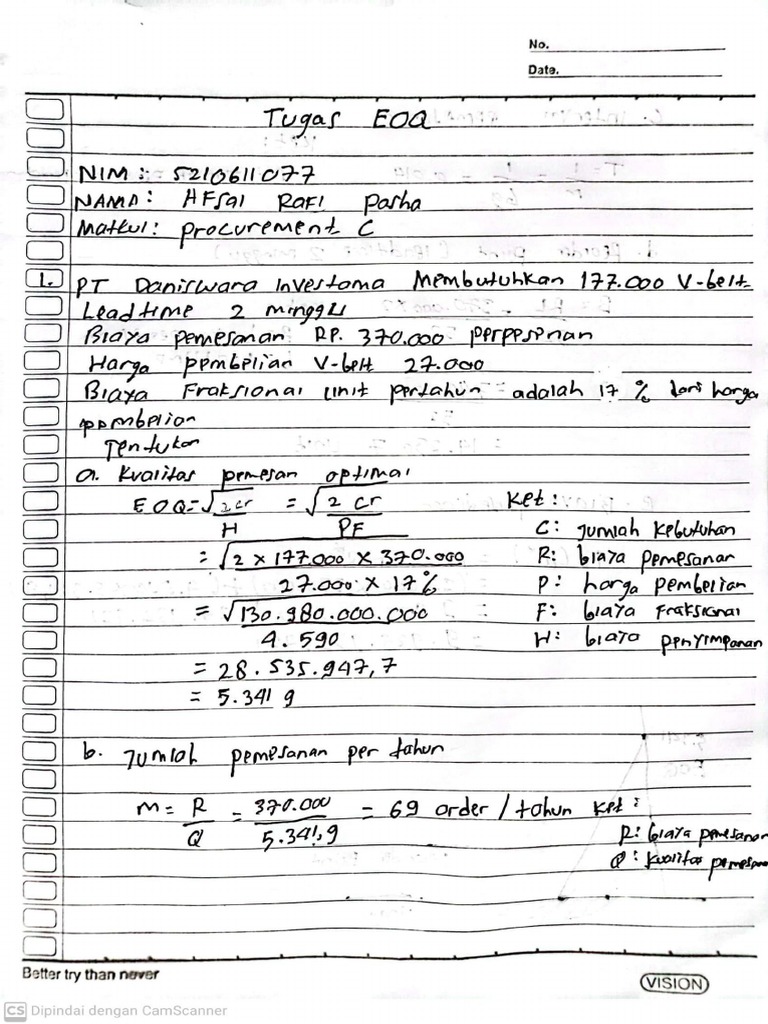 No.
Date.
Tugas EOQ
NIM : 5210611077
NAMA : AFSAI RAFI Pasha
Matkul : Procurement C
1. PT Daniswara Investama Membutuhkan 177.000 V-belt
Lead time 2 minggu
Biaya pemesanan RP. 370.000 perpesanan
Harga pembelian V-belt 27.000
Biaya Fraksional Unit pertahun adalah 17 % dari harga
pembelian
Tentukan
a. Kualitas pemesan optimal
EOQ = √2cr = √2 cr Ket :
H PF C : Jumlah Kebutuhan
= √2 x 177.000 x 370.000 R : biaya pemesanan
27.000 x 17% P : harga pembelian
= √130.980.000.000 F : biaya Fraksional
4.590 H : biaya penyimpanan
= 28.535.947,7
= 5.341 9
b. Jumlah pemesanan per tahun
M = R = 370.000 = 69 order / tahun Ket :
Q 5.341,9 R : biaya pemesanan
Q : kualitas pemesan
Better try than never
VISION
CS Dipindai dengan CamScanner